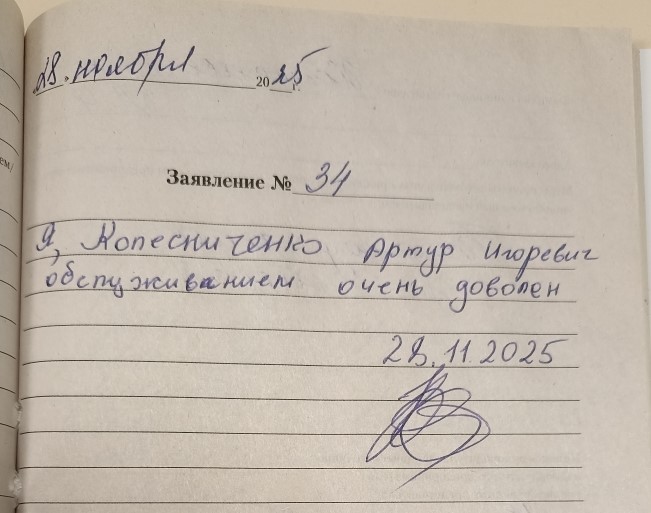 28. ноября 2025 г.
Заявление № 34
Я, Колесниченко Артур Игоревич
обслуживанием очень доволен
28.11.2025